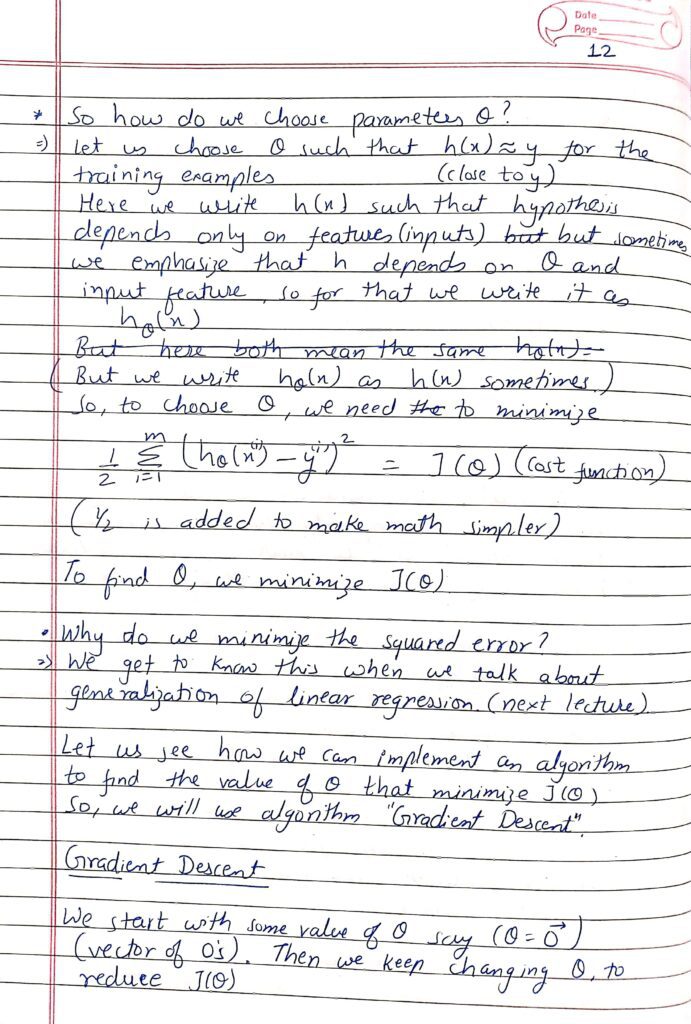 Date
Page
12
* So how do we choose parameters θ?
⇒ Let us choose θ such that h(x) ≈ y for the
training examples (close to y)
Here we write h(x) such that hypothesis
depends only on features (inputs) but but sometimes
we emphasize that h depends on θ and
input feature, so for that we write it as
hθ(x)
But here both mean the same hθ(x)=
(But we write hθ(x) as h(x) sometimes.)
So, to choose θ, we need the to minimize
1/2 Σ_{i=1}^{m} (hθ(x^(i)) - y^(i))^2 = J(θ) (cost function)
(1/2 is added to make math simpler)
To find θ, we minimize J(θ)
• Why do we minimize the squared error?
⇒ We get to know this when we talk about
generalization of linear regression. (next lecture)
Let us see how we can implement an algorithm
to find the value of θ that minimize J(θ)
So, we will use algorithm "Gradient Descent".
Gradient Descent
We start with some value of θ say (θ = 0⃗)
(vector of 0's). Then we keep changing θ, to
reduce J(θ)